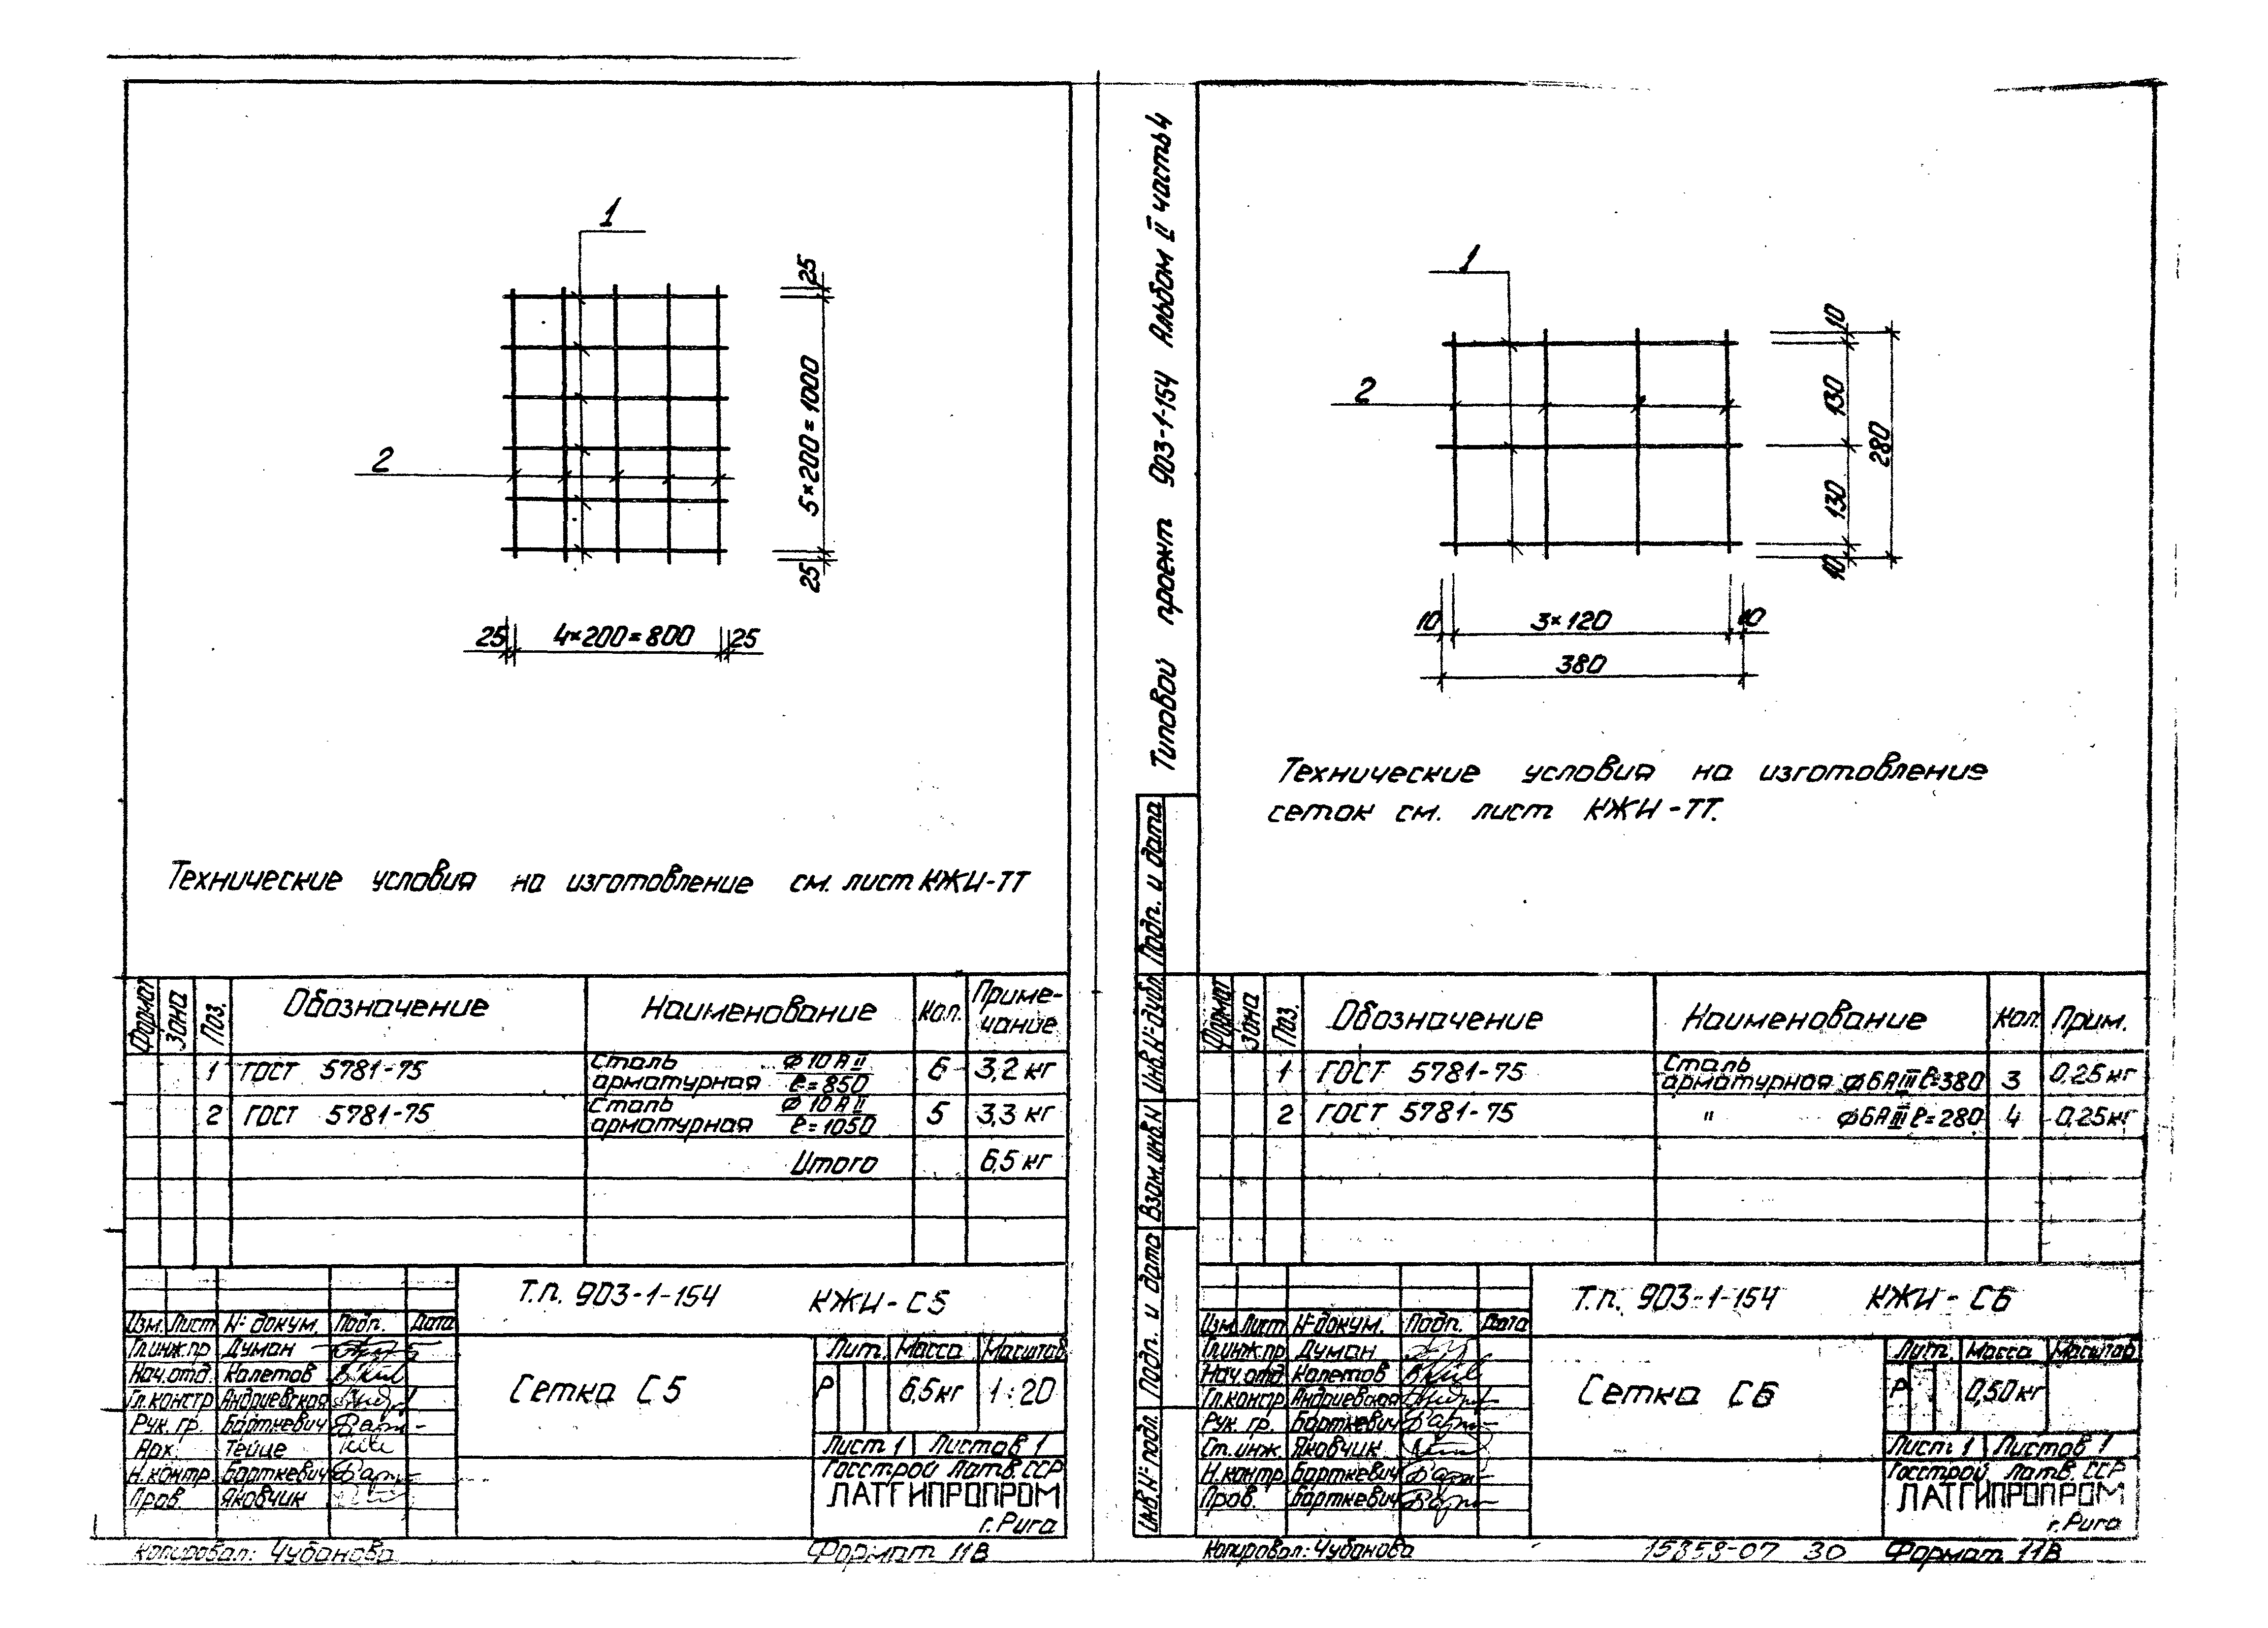 1
2
25
5×200=1000
25
25 4×200=800 25
Технические условия на изготовление см. лист КЖИ-ТТ
Формат Зона Поз. Обозначение Наименование Кол. Приме-
чание
1 ГОСТ 5781-75 Сталь арматурная ⌀10АII ℓ=850 6 3,2 кг
2 ГОСТ 5781-75 Сталь арматурная ⌀10АII ℓ=1050 5 3,3 кг
Итого 6,5 кг
Т.п. 903-1-154 КЖИ-С5
Изм. Лист № докум. Подп. Дата
Гл.инж.пр Думан
Нач.отд. Калетов
Гл.констр Андриевская
Рук. гр. Барткевич
Арх. Тейце
Н.контр. Барткевич
Пров. Яковчик
Сетка С5
Лит. Масса Масштаб
Р 6,5кг 1:20
Лист 1 Листов 1
Госстрой Латв.ССР
ЛАТГИПРОПРОМ
г.Рига
Копировал: Чубанова Формат 11В
Типовой проект 903-1-154 Альбом II часть 4
Подп. и дата
Инв.№ дубл.
Взам.инв.№
Подп. и дата
Инв.№ подл.
1
2
10
130
130
10
280
10 3×120 10
380
Технические условия на изготовление
сеток см. лист КЖИ-ТТ.
Формат Зона Поз. Обозначение Наименование Кол. Прим.
1 ГОСТ 5781-75 Сталь арматурная ⌀6АIII ℓ=380 3 0,25кг
2 ГОСТ 5781-75 " ⌀6АIII ℓ=280 4 0,25кг
Т.п. 903-1-154 КЖИ-С6
Изм. Лист № докум. Подп. Дата
Гл.инж.пр Думан
Нач.отд. Калетов
Гл.контр. Андриевская
Рук. гр. Барткевич
Ст.инж. Яковчик
Н.контр. Барткевич
Пров. Барткевич
Сетка С6
Лит. Масса Масштаб
Р 0,50кг
Лист 1 Листов 1
Госстрой Латв.ССР
ЛАТГИПРОПРОМ
г.Рига
Копировал: Чубанова 15858-07 30 Формат 11В